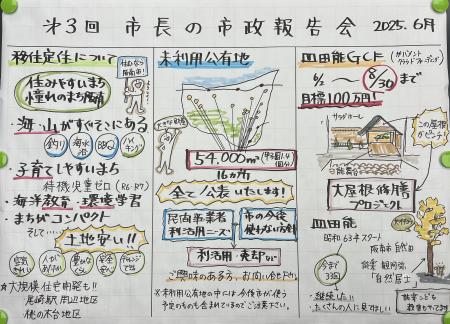 第3回 市長の市政報告会 2025.6月
移住定住について
住みやすいまち
憧れのまち阪南
住むなら
阪南市!
・海・山がすぐそこにある
釣り 海水浴 BBQ
・子育てしやすいまち
待機児童ゼロ(R6・R7)
・海洋教育・環境学習
・まちがコンパクト
そして・・・・
土地安い!!
空気きれい
安全安心
☆大規模住宅開発も!!
尾崎駅周辺地区
他の木台地区
未利用公有地
大きな財産
54,000㎡
16カ所
全て公表いたします!
民間事業者
利活用ニーズ
市の今後
使わない方針
利活用・売却など
ご興味のある方、お問い合せ下さい
※未利用公有地の中には今後市が使う
予定のものも含まれているのでご注意下さい。
皿田能GCF
(ガバメント
クラウドファンディング)
6/2〜8/30まで
目標100万円!
サラダホール
能舞台
この屋根
がピンチ!
大屋根修繕
プロジェクト
皿田能
昭和63年スタート
阪南市自然田
能楽 観阿弥
「自然居士」
今まで
33回
・継続したい!
・たくさんの人に見てほしい
能楽こども
教室もやってます